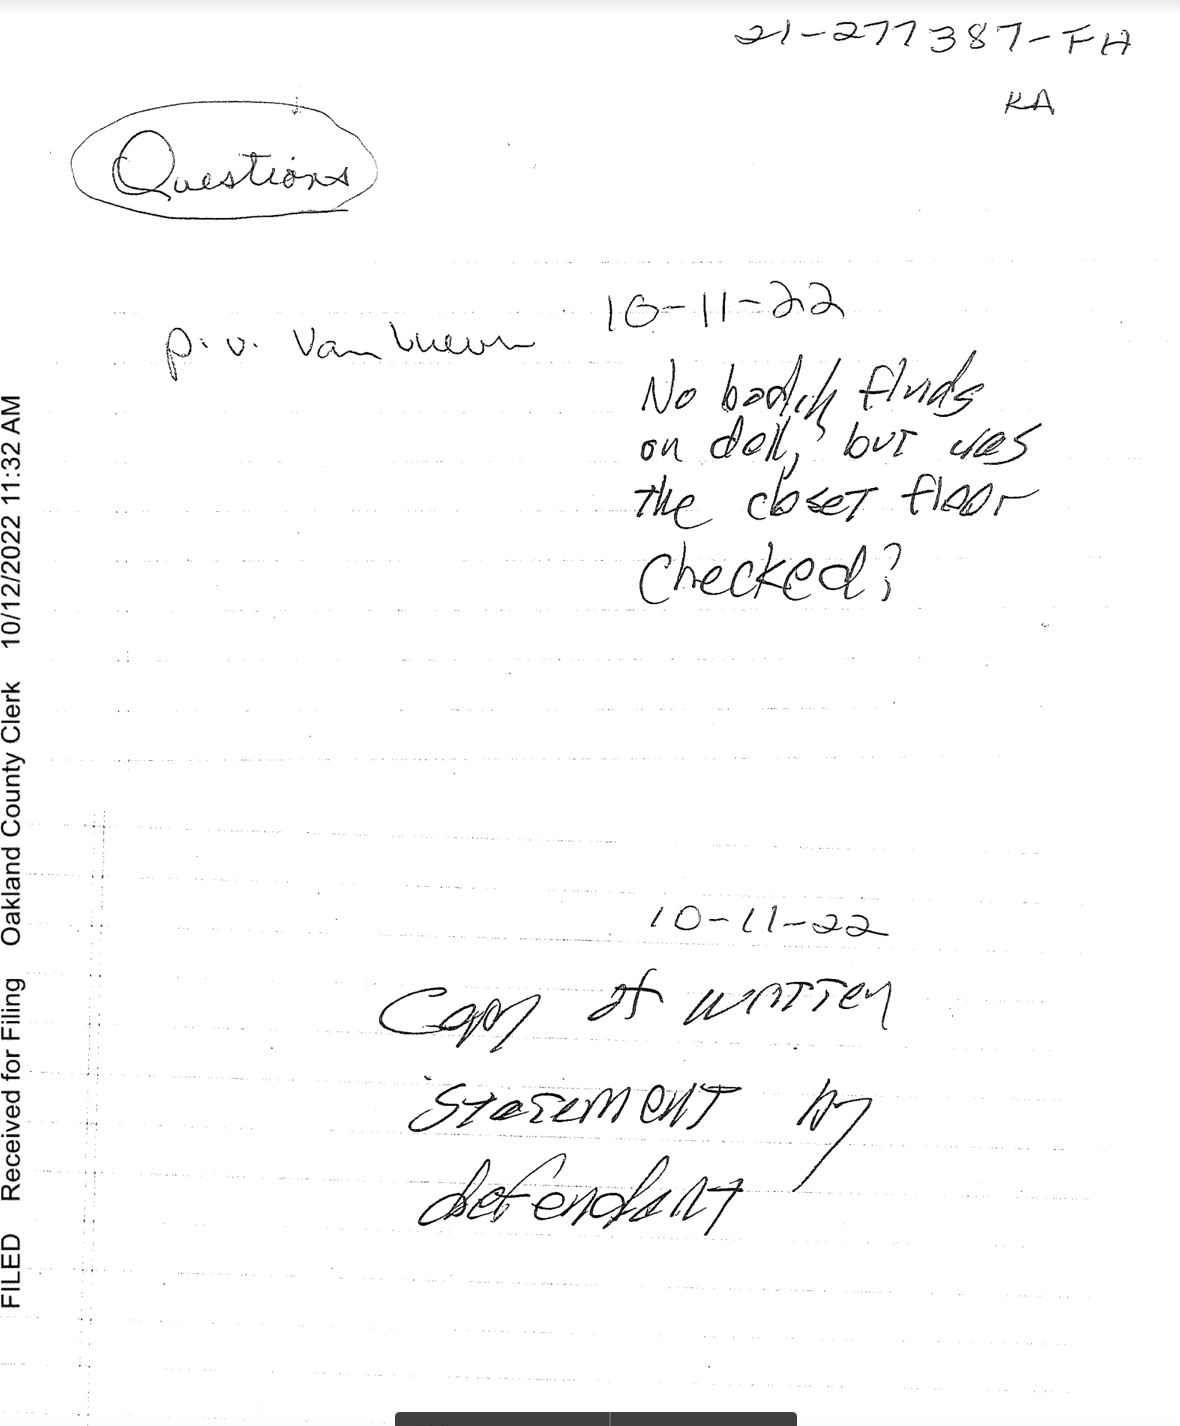 21-277387-FH
KA
Questions
10-11-22
p. v. Van
No bodily fluids
on doll, but was
the closet floor
checked?
10-11-22
Copy of written
statement by
defendant
FILED Received for Filing Oakland County Clerk 10/12/2022 11:32 AM